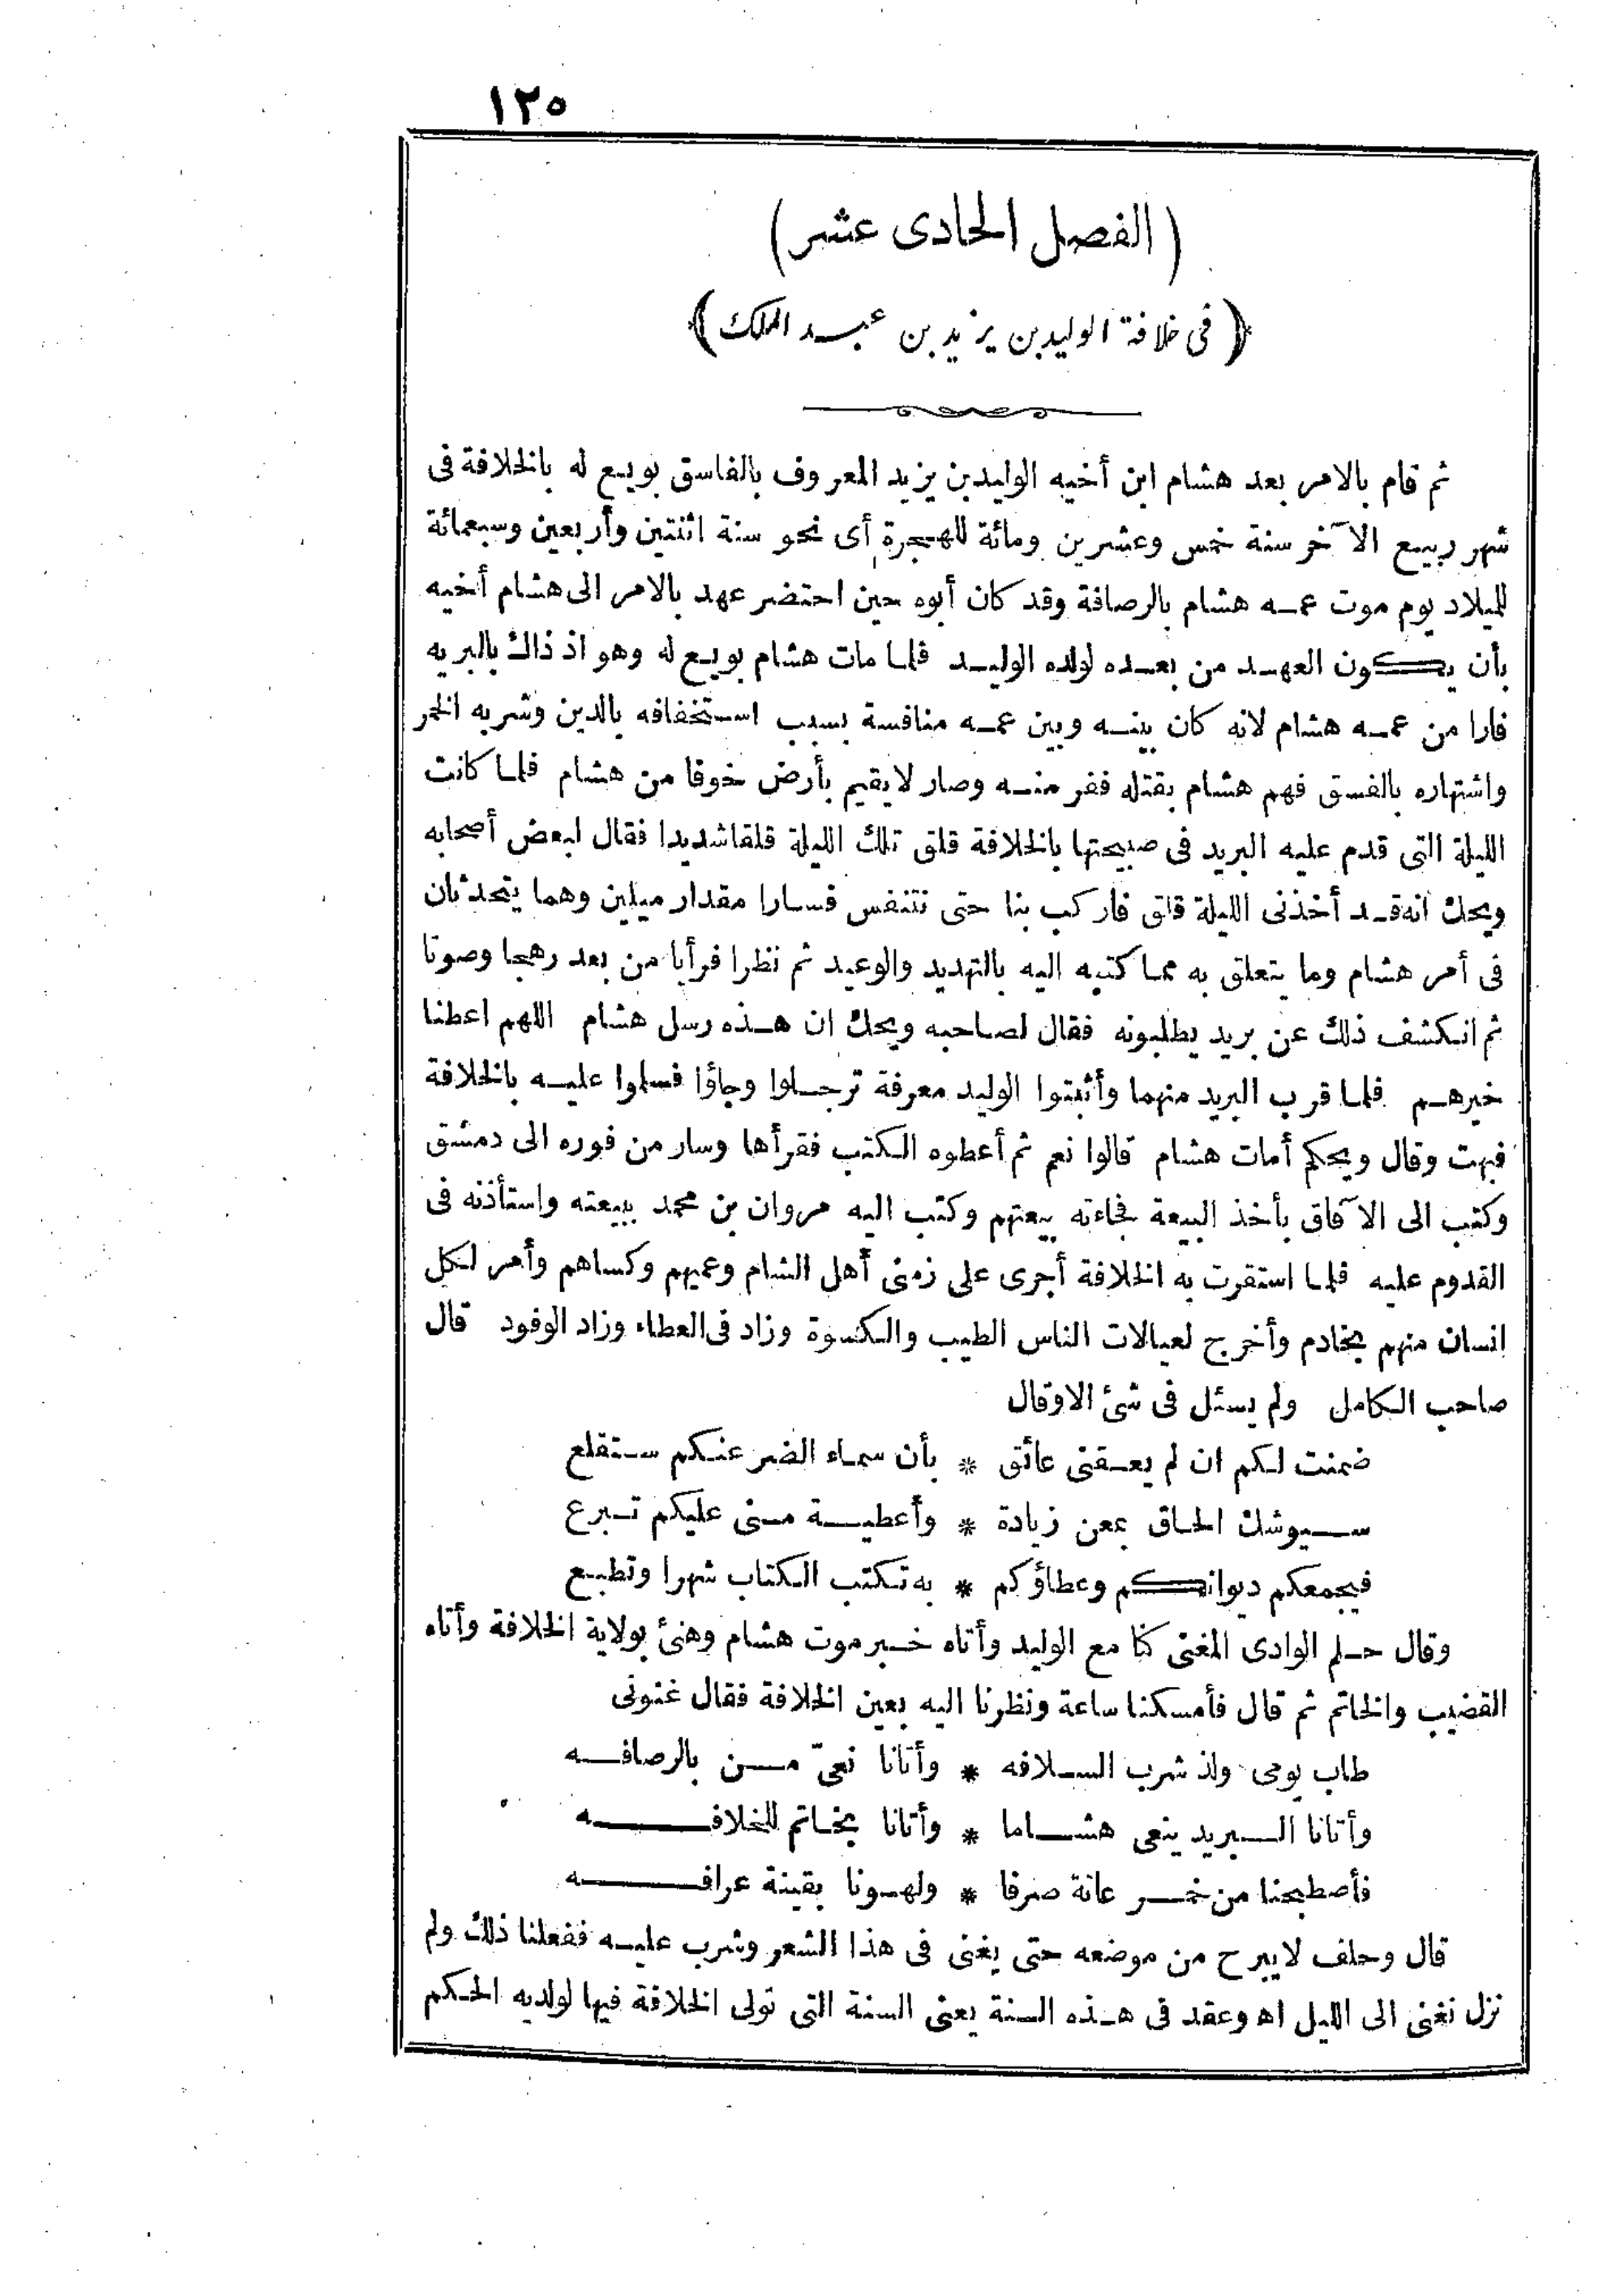 ١٢٥
(الفصل الحادى عشر)
(فى خلافة الوليد بن يزيد بن عبد الملك)
ثم قام بالامر بعد هشام ابن أخيه الوليد بن يزيد المعروف بالفاسق بويع له بالخلافة فى
شهر ربيع الآخر سنة خمس وعشرين ومائة للهجرة أى نحو سنة اثنتين وأربعين وسبعمائة
للميلاد يوم موت عمه هشام بالرصافة وقد كان أبوه حين احتضر عهد بالامر الى هشام أخيه
بأن يكون العهد من بعده لولده الوليد فلما مات هشام بويع له وهو اذ ذاك بالبريه
فارا من عمه هشام لانه كان بينه وبين عمه منافسة بسبب استخفافه بالدين وشربه الخمر
واشتهاره بالفسق فهم هشام بقتله ففر منه وصار لا يقيم بأرض خوفا من هشام فلما كانت
الليلة التى قدم عليه البريد فى صبيحتها بالخلافة قلق تلك الليلة قلقا شديدا فقال لبعض أصحابه
ويحك انه قد أخذنى الليلة قلق فاركب بنا حتى نتنفس فسارا مقدار ميلين وهما يتحدثان
فى أمر هشام وما يتعلق به مما كتبه اليه بالتهديد والوعيد ثم نظرا فرأيا من بعد رهجا وصوتا
ثم انكشف ذلك عن بريد يطلبونه فقال لصاحبه ويحك ان هذه رسل هشام اللهم اعطنا
خيرهم فلما قرب البريد منهما وأثبتوا الوليد معرفة ترجلوا وجاؤا فسلموا عليه بالخلافة
فبهت وقال ويحكم أمات هشام قالوا نعم ثم أعطوه الكتب فقرأها وسار من فوره الى دمشق
وكتب الى الآفاق بأخذ البيعة فجاءته بيعتهم وكتب اليه مروان بن محمد ببيعته واستأذنه فى
القدوم عليه فلما استقرت به الخلافة أجرى على زمنى أهل الشام وعميهم وكساهم وأمر لكل
انسان منهم بخادم وأخرج لعيالات الناس الطيب والكسوة وزاد فى العطاء وزاد الوفود قال
صاحب الكامل ولم يسئل فى شئ الا وقال
ضمنت لكم ان لم يعقنى عائق * بأن سماء الضر عنكم ستقلع
سيوشك الحاق بمعن زيادة * وأعطية منى عليكم تبرع
فيجمعكم ديوانكم وعطاؤكم * به تكتب الكتاب شهرا وتطبع
وقال حلم الوادى المغنى كنا مع الوليد وأتاه خبر موت هشام وهنئ بولاية الخلافة وأتاه
القضيب والخاتم ثم قال فأمسكنا ساعة ونظرنا اليه بعين الخلافة فقال غنونى
طاب يومى ولذ شرب السلافه * وأتانا نعىّ من بالرصافه
وأتانا البريد ينعى هشاما * وأتانا بخاتم للخلافه
فأصطبحنا من خمر عانة صرفا * ولهونا بقينة عرافه
قال وحلف لا يبرح من موضعه حتى يغنى فى هذا الشعر وشرب عليه ففعلنا ذلك ولم
نزل نغنى الى الليل اه وعقد فى هذه السنة يعنى السنة التى تولى الخلافة فيها لولديه الحكم